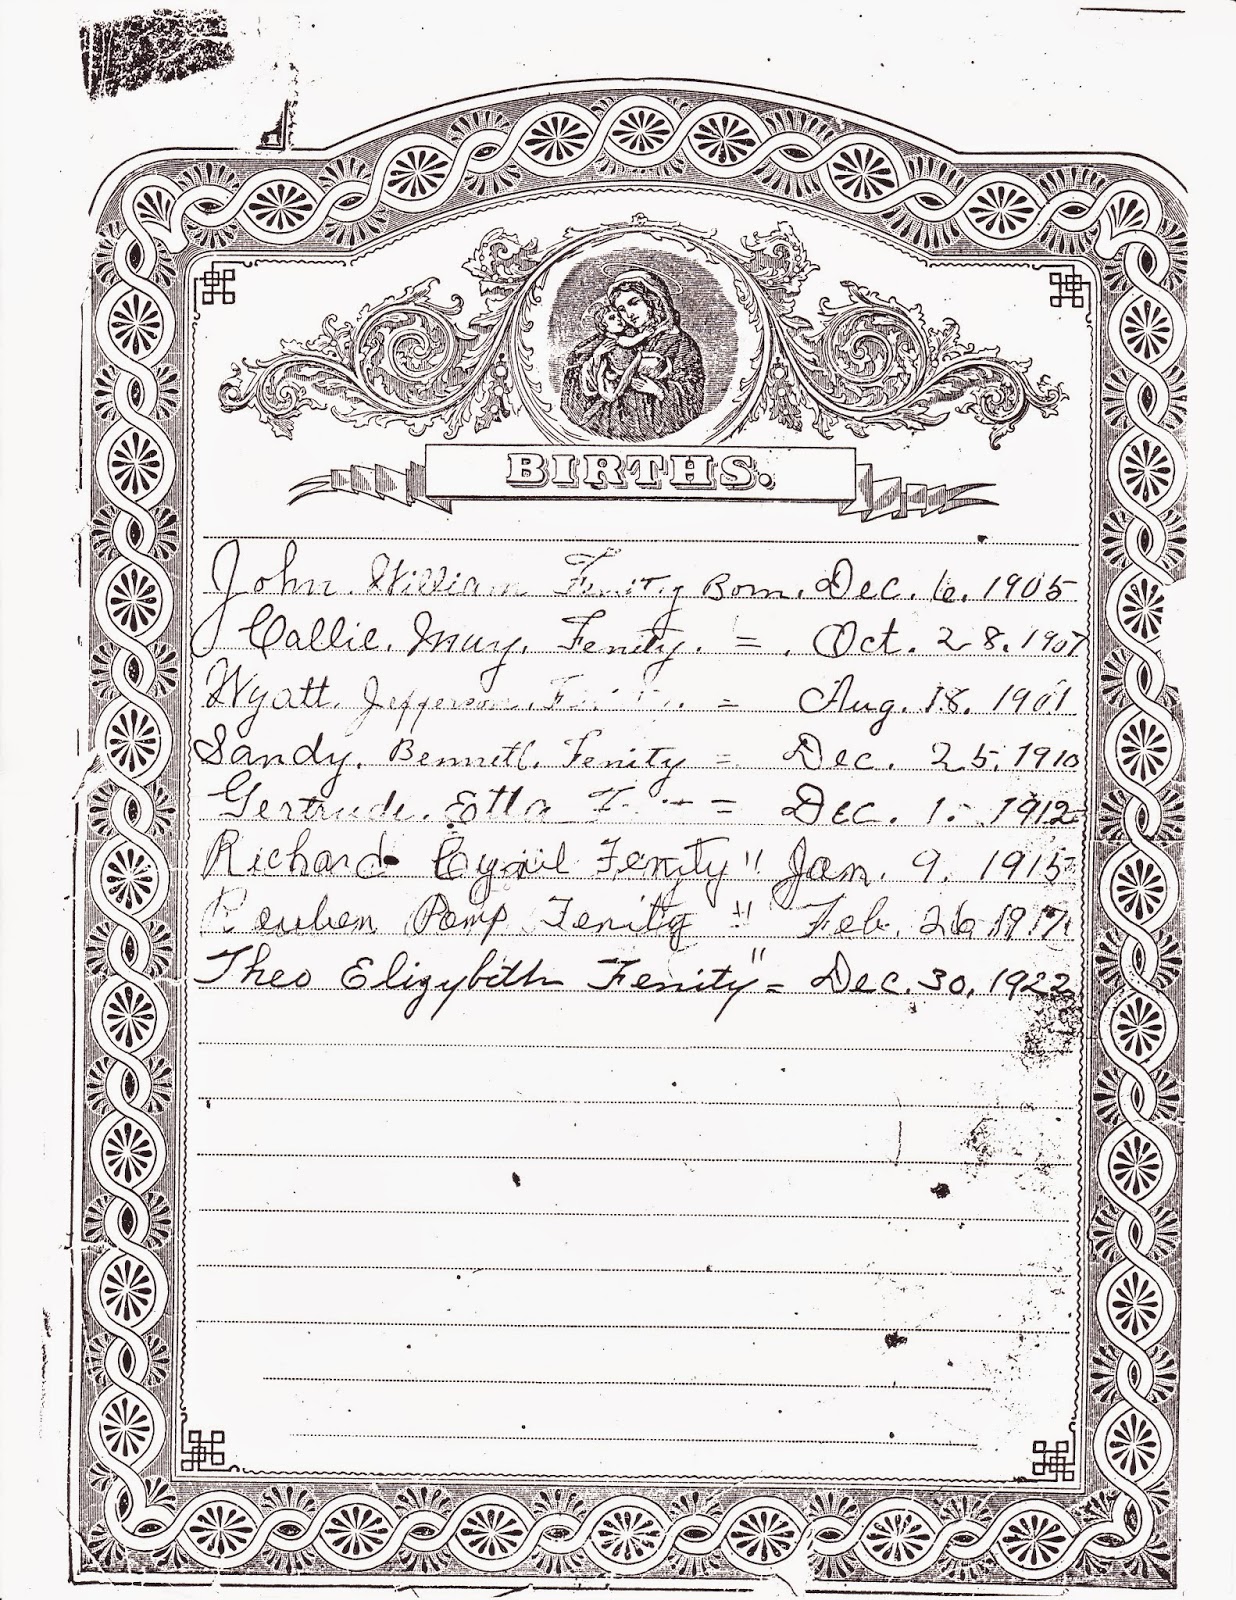 BIRTHS.
John. William Fenity Born. Dec. 6. 1905
Callie. May. Fenity. = . Oct. 28. 1907
Wyatt. Jefferson. = Aug. 18. 1901
Sandy. Bennett. Fenity = Dec. 25, 1910
Gertrude. Etta = Dec. 1. 1912
Richard Cyril Fenity " Jan. 9. 1915
Reuben Pomp Fenity " Feb. 26 1917.
Theo Elizybith Fenity " = Dec. 30, 1922